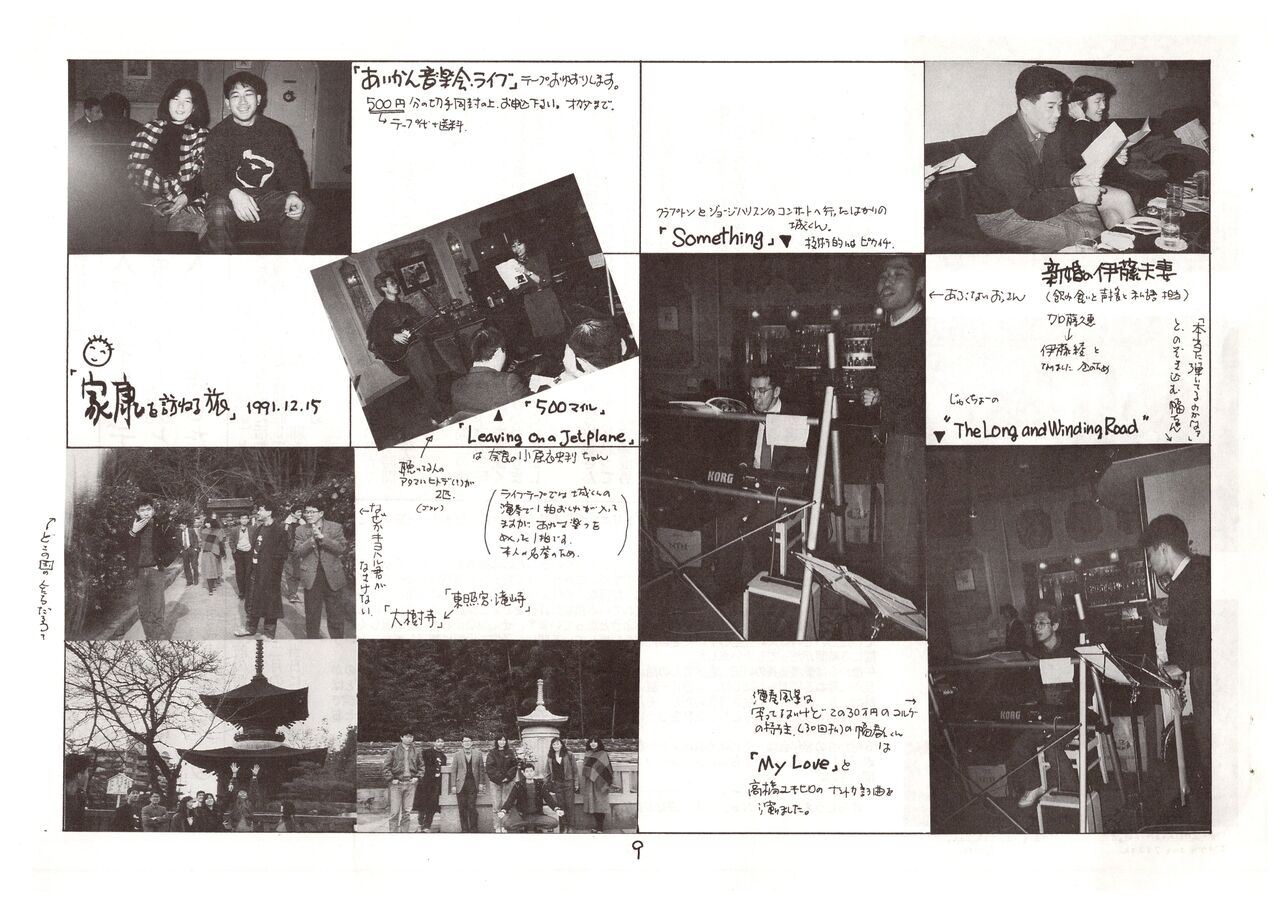 「あいかん音楽会・ライブ」テープおゆずりします。
500円分の切手同封の上、お申込下さい。オカダまで。
↳テープ代+送料
クラプトンとジョージハリスンのコンサートへ行ったばかりの
城くん。
「Something」▼ 技術的にはピカイチ.
「家康を訪ねる旅」1991.12.15
▲「500マイル」
「Leaving on a Jetplane」
は奈良の小原
ちゃん
聴いてる人の
アタマにヒトデ(?)が
2匹.
ライブテープでは城くんの
演奏で1拍
ますが
めくった1拍です.
本人の名誉のため.
←なぜかキヨハル君が
なさけない.
「東照宮・滝山寺」
「大樹寺」
←あぶないおっさん
新婚の伊藤夫妻
(飲み食いと声援と私語担当)
加藤
↓
伊藤
と
なりました
「本当に弾いてるのかなァ」
とのぞき込む
じゅくちょーの
▼"The Long and Winding Road"
KORG
KORG
演奏風景は →
写ってないけどこの30万円のコルグ
の持主(30回払)の
くん
は
「My Love」と
高橋ユキヒロのナントカ
計画を
演りました。
9